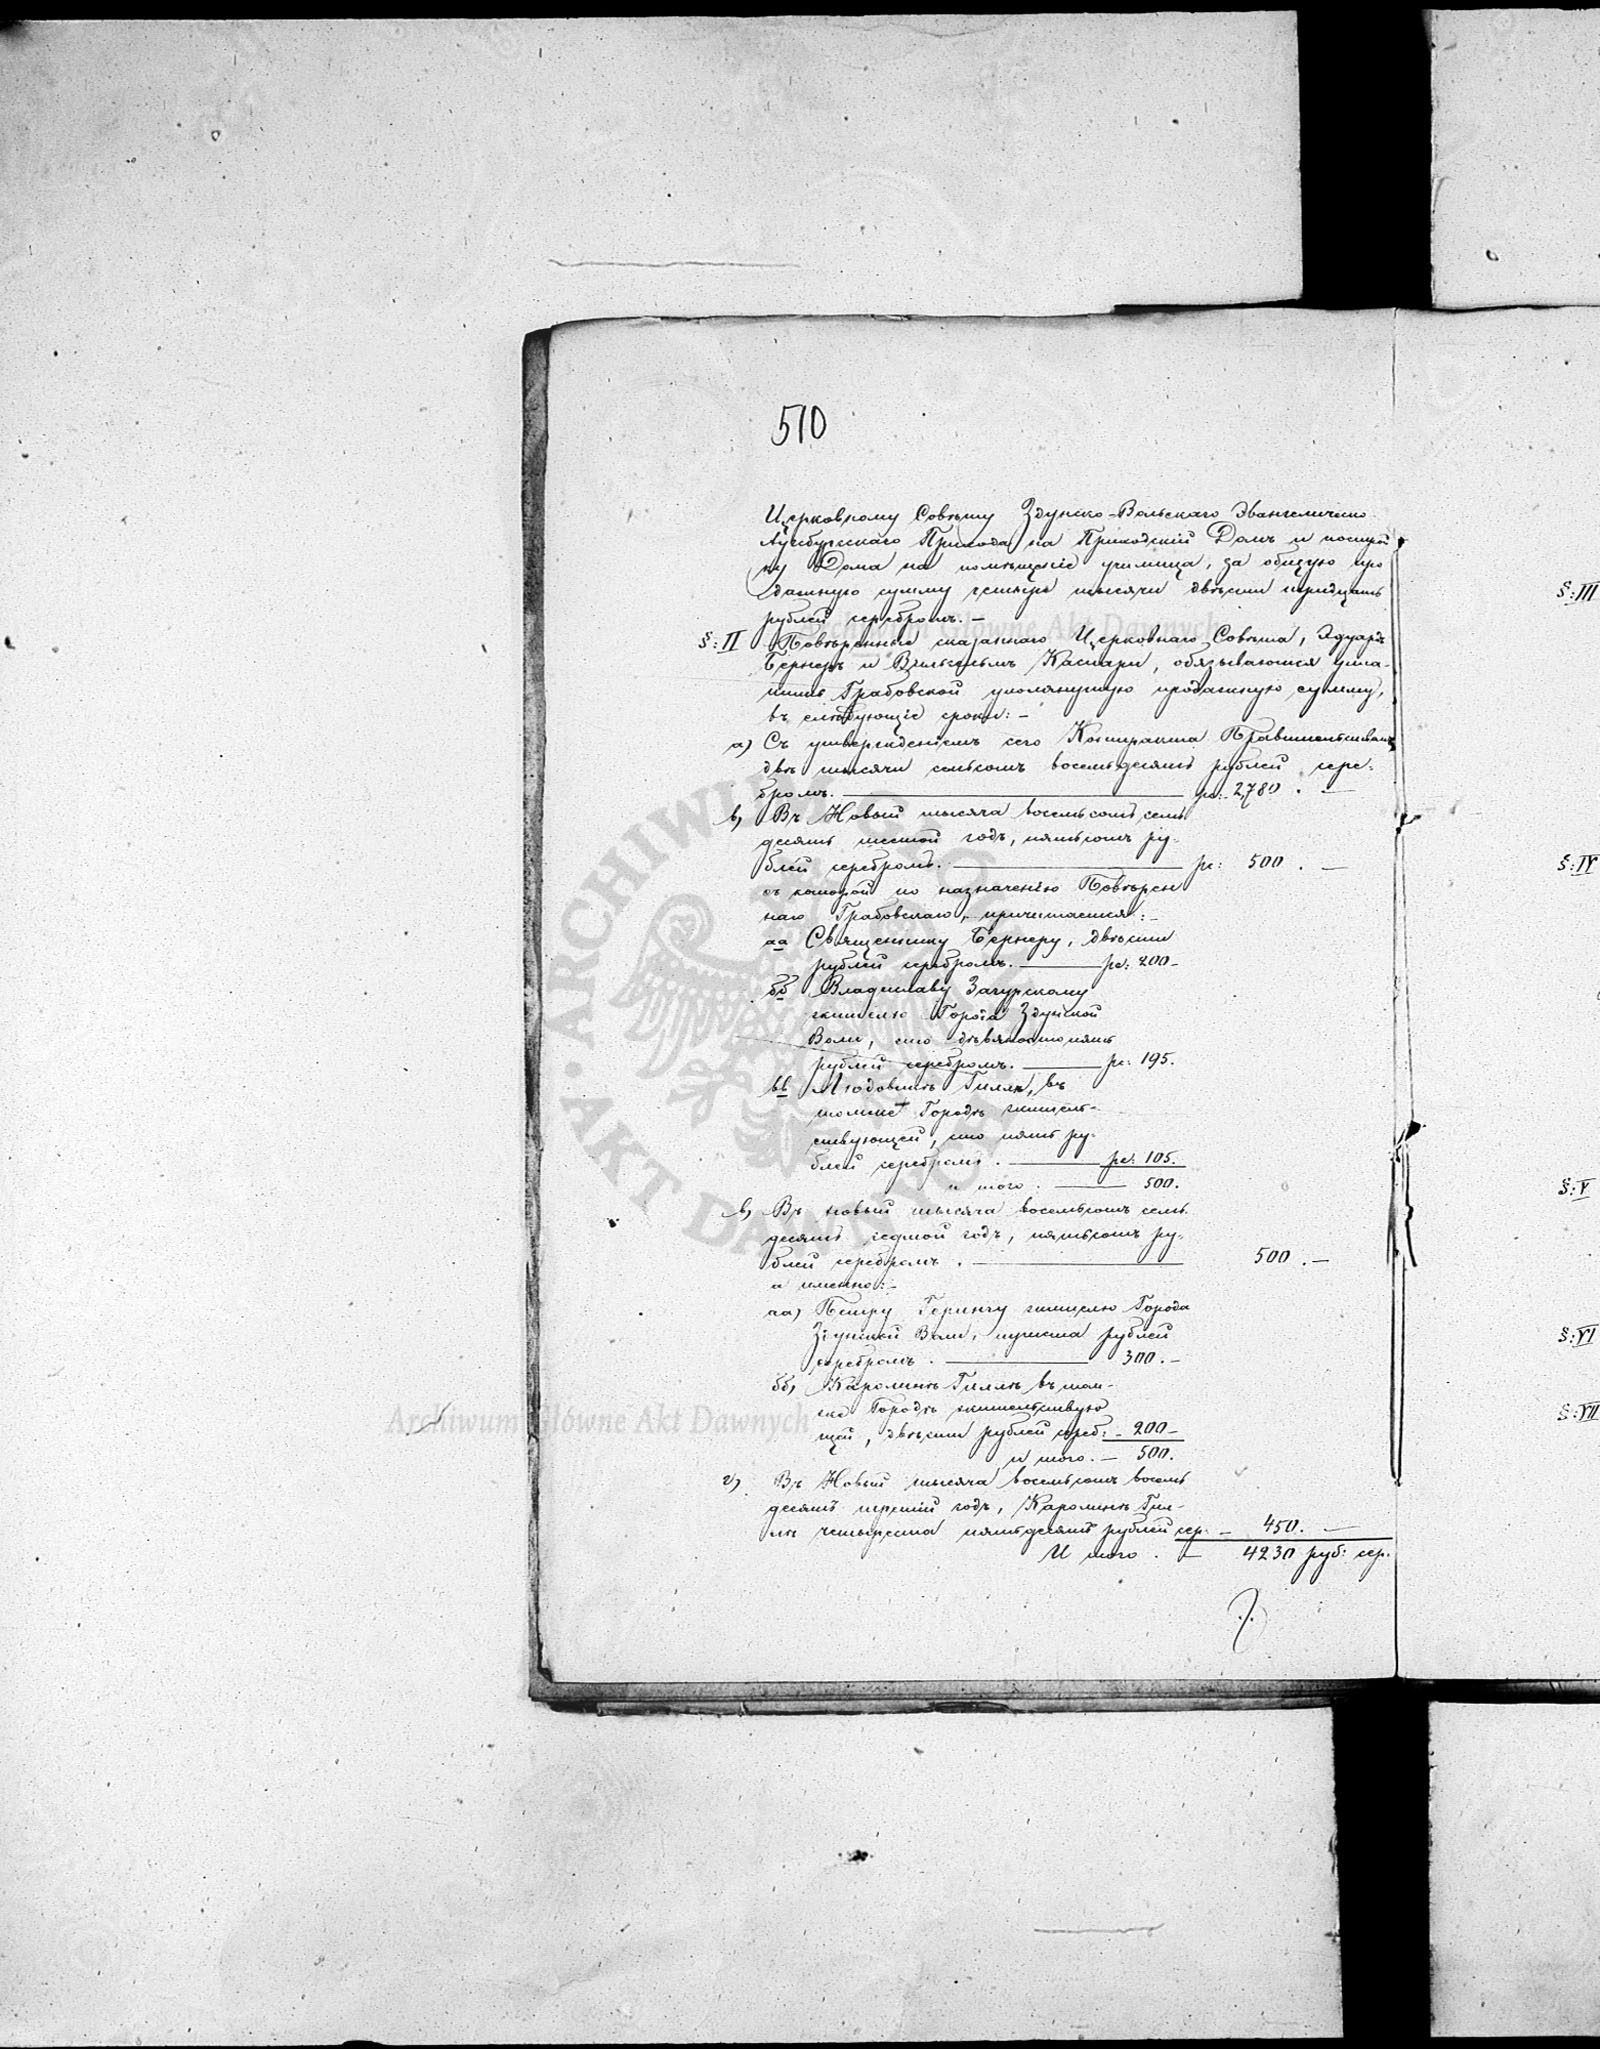 510
Церковному Совѣту Здунско-Вольскаго Эвангелическо
Аугсбургскаго Прихода на Приходскій Домъ и построй
ку Дома на помѣщеніе училища, за общую про
дажную сумму четыре тысячи двѣсти тридцать
рублей серебромъ. —
§: II Повѣренные сказаннаго Церковнаго Совѣта, Эдуардъ
Бернеръ и Вильгельмъ Каспари, обязываются упла-
тить Грабовской упомянутую продажную сумму,
въ слѣдующіе сроки: —
а) Съ утвержденіемъ сего Контракта Правительствомъ
двѣ тысячи семьсотъ восемьдесятъ рублей сере-
бромъ. — рс: 2,780 . —
б) Въ Новый тысяча восемьсотъ семь
десятъ шестой годъ, пятьсотъ ру-
блей серебромъ. — рс: 500 . —
съ которой по назначенію Повѣрен
наго Грабовскаго, причитается: —
аа Священнику Бернеру, двѣсти
рублей серебромъ. — рс: 200 —
бб Владиславу Зачурскому
жителю Города Здунской
Воли, сто девяносто пять
рублей серебромъ. — рс: 195.
вв Людовикѣ Гилле, въ
томже Городѣ житель-
ствующей, сто пять ру-
блей серебромъ . — рс: 105.
и того . — 500.
в) Въ новый тысяча восемьсотъ семь
десятъ седмой годъ, пятьсотъ ру-
блей серебромъ . — 500 . —
а именно: —
аа) Петру Герингу жителю Города
Здунской Воли, триста рублей
серебромъ . — 300. —
бб) Каролинѣ Гилле въ том-
же Городѣ жительствую
щей, двѣсти рублей сереб: — 200 —
и того. — 500.
г) Въ Новый тысяча восемьсотъ восемь
десятъ третій годъ, Каролинѣ Гил-
ле четыреста пятьдесятъ рублей сер. — 450. —
И того . — 4230 руб: сер.
§: III
§: IV
§: V
§: VI
§: VII
Archiwum Główne Akt Dawnych
Archiwum Główne Akt Dawnych
ARCHIWUM GŁÓWNE · AKT DAWNYCH